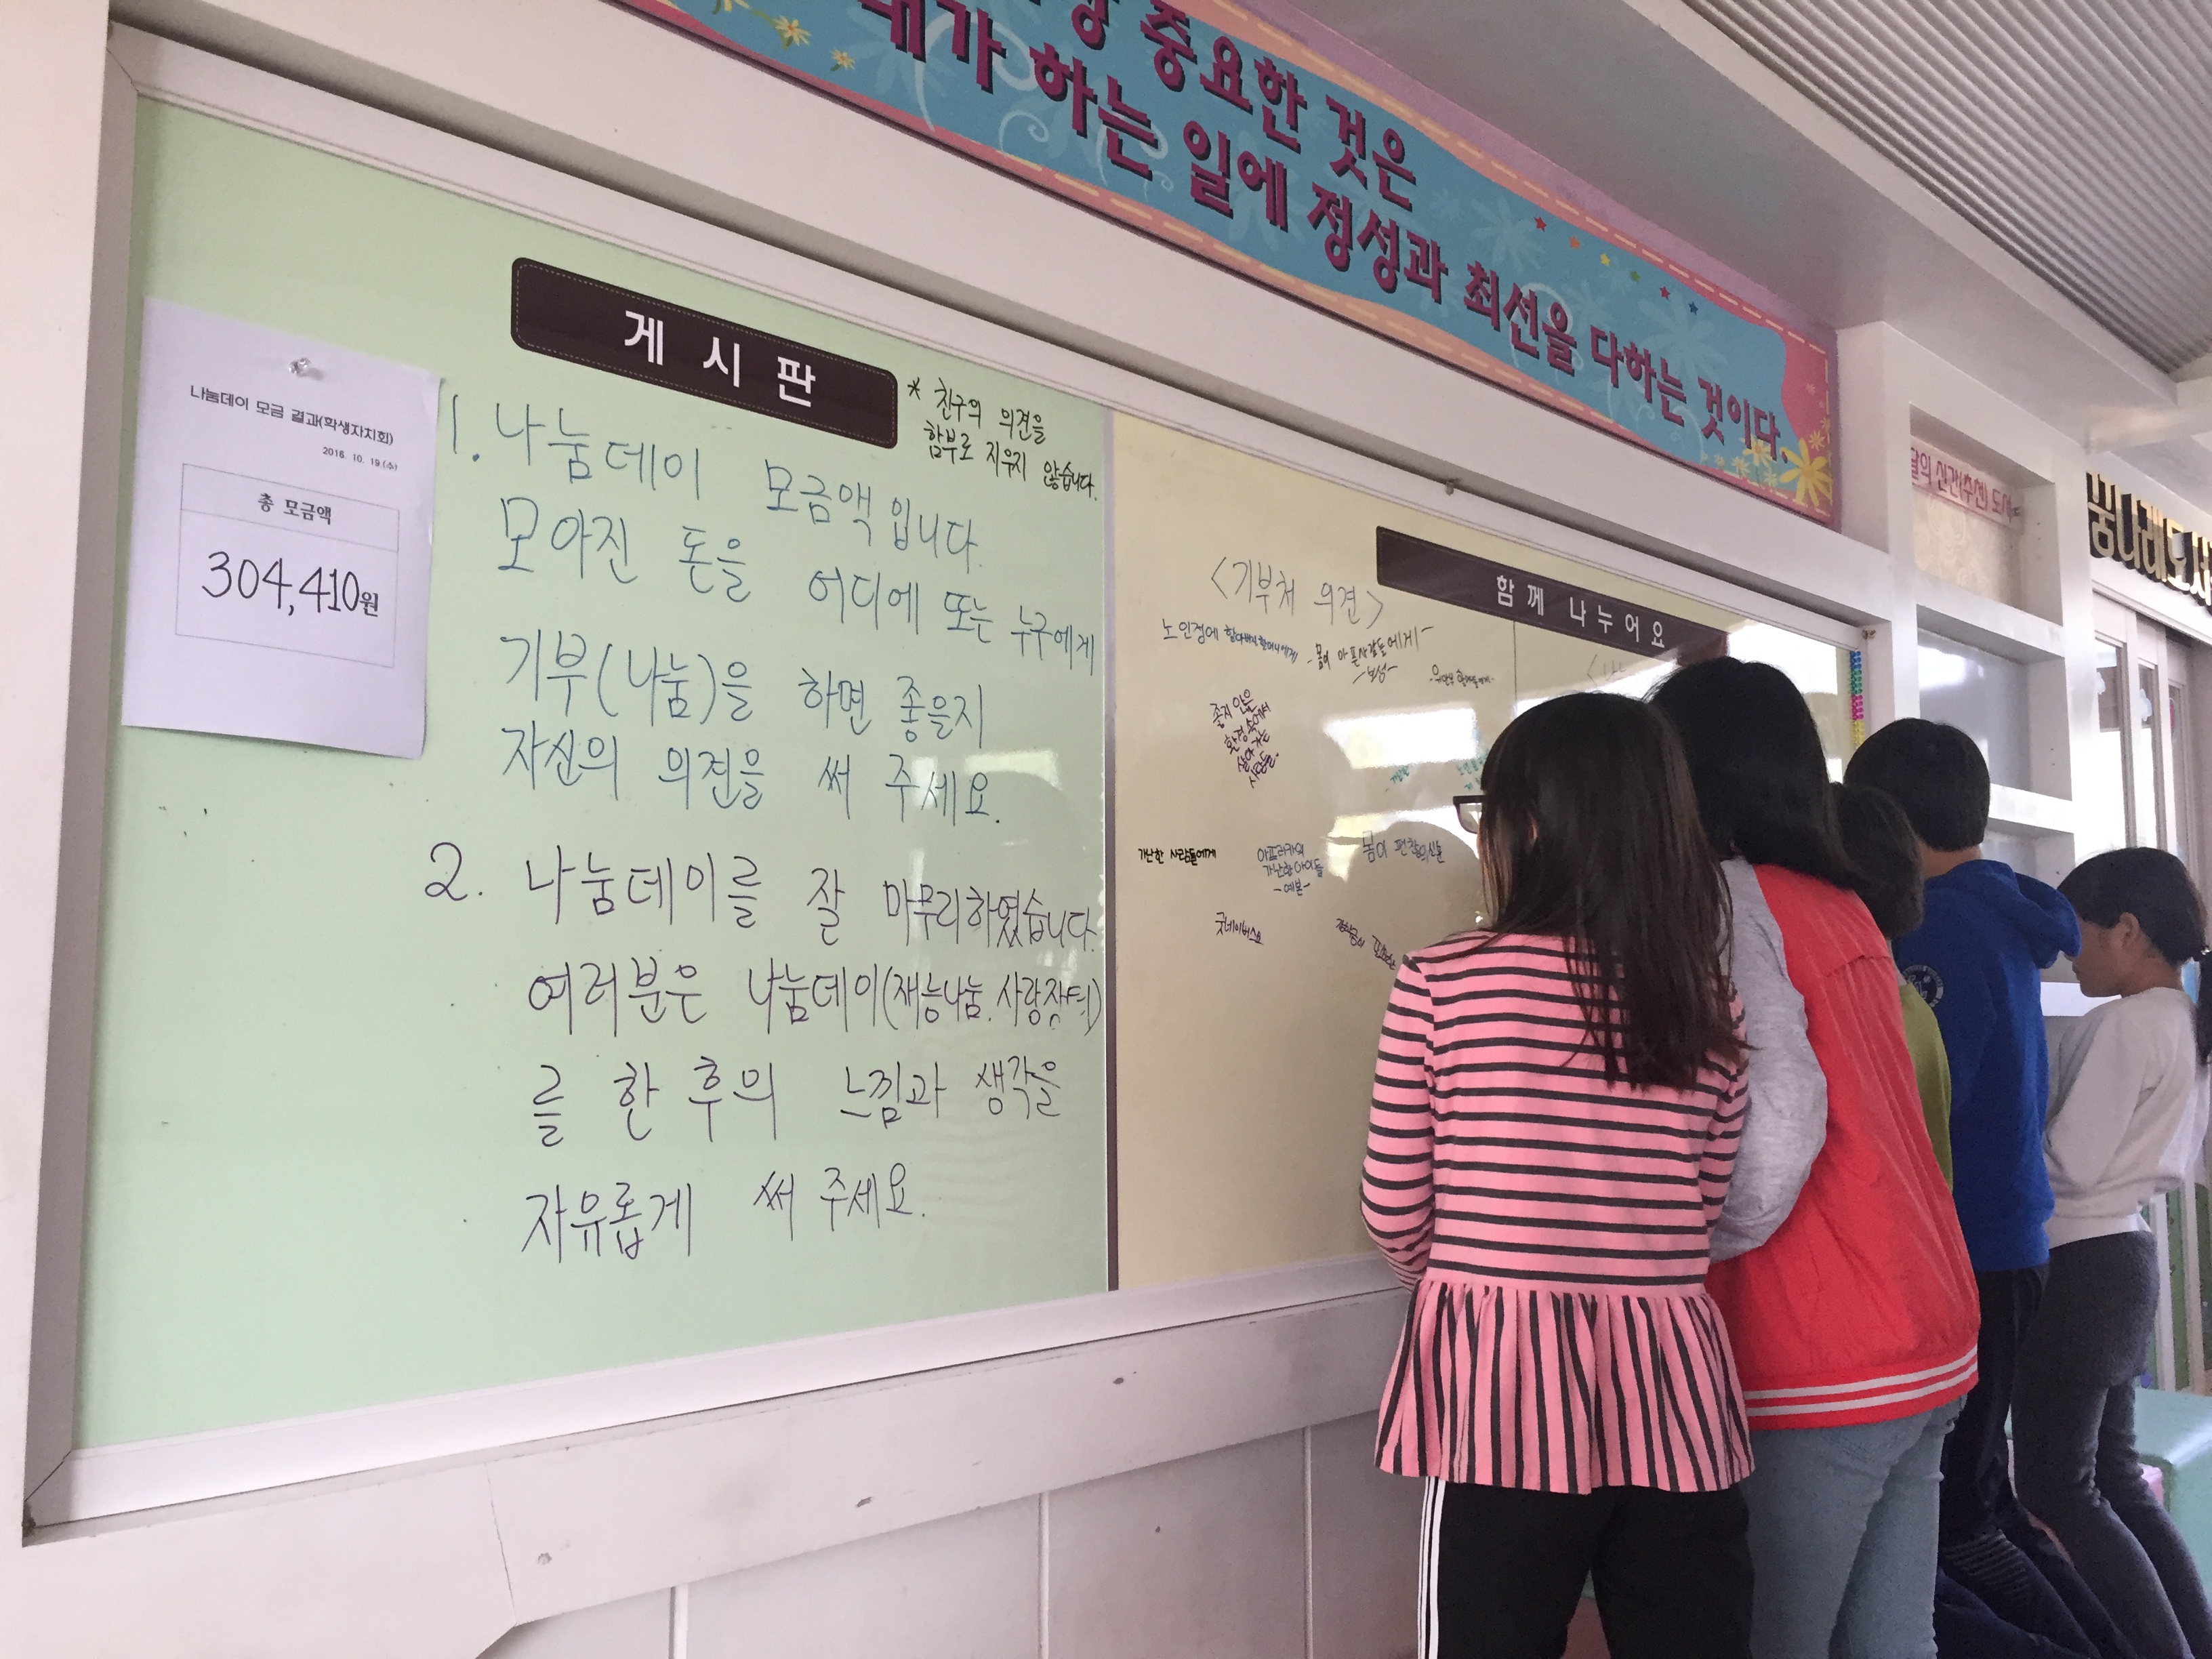 중요한 것은
내가 하는 일에 정성과 최선을 다하는 것이다.
게시판
* 친구의 의견을
함부로 지우지 않습니다.
나눔데이 모금 결과(학생자치회)
2016. 10. 19.(수)
총 모금액
304,410원
1. 나눔데이 모금액입니다.
모아진 돈을 어디에 또는 누구에게
기부(나눔)을 하면 좋을지
자신의 의견을 써 주세요.
2. 나눔데이를 잘 마무리하였습니다.
여러분은 나눔데이(재능나눔, 사랑장터)
를 한 후의 느낌과 생각을
자유롭게 써 주세요.
함께 나누어요
<기부처 의견>
노인정에 할아버지 할머니에게
몸이 아픈사람들에게
-보성-
좋지 않은
환경 속에서
살아가는
사람들.
가난한 사람들에게
아프리카의
가난한 아이들
-예본-
몸이
굿네이버스요
달의 신간(추천) 도서
꿈나래도서